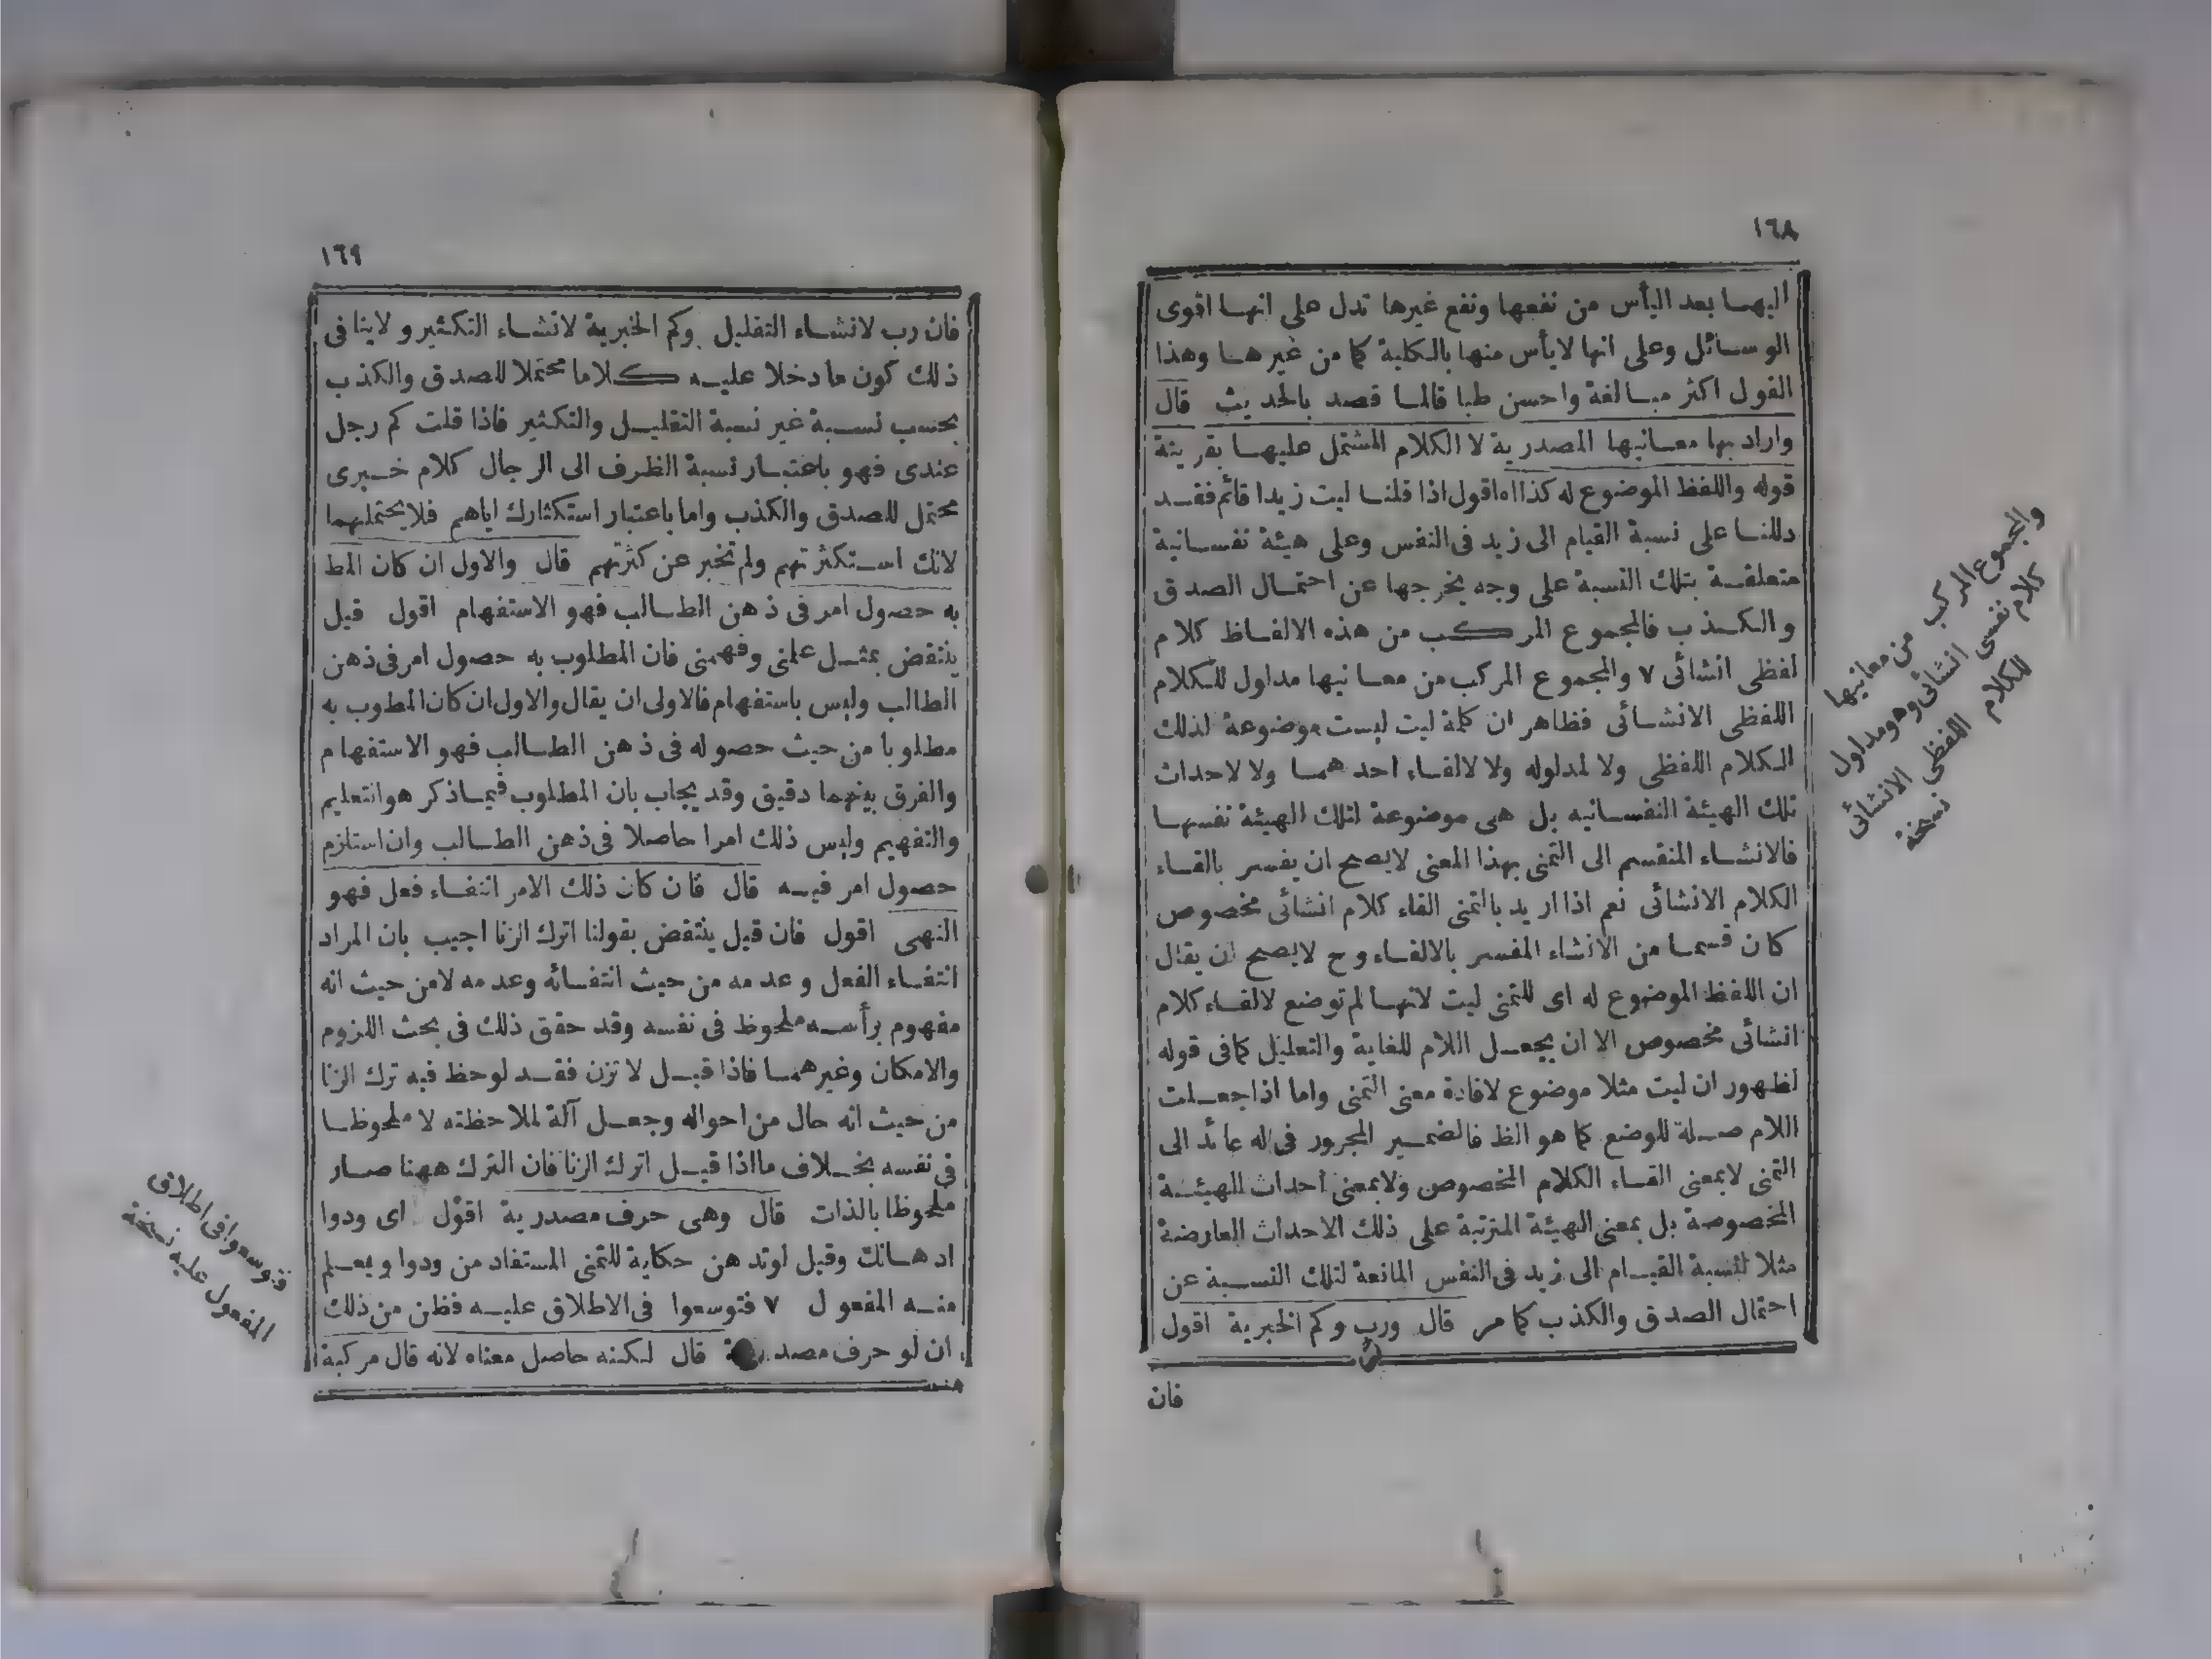 ١٦٨
اليهما بعد اليأس من نفعها ونفع غيرها تدل على انها اقوى
الوسائل وعلى انها لايأس منها بالكلية كما من غيرها وهذا
القول اكثر مبالغة واحسن طبا قالما قصد بالحديث قال
واراد بها معانيها المصدرية لا الكلام المشتمل عليها بقرينة
قوله واللفظ الموضوع له كذا اه اقول اذا قلنا ليت زيدا قائم فقد
دللنا على نسبة القيام الى زيد فى النفس وعلى هيئة نفسانية
متعلقة بتلك النسبة على وجه يخرجها عن احتمال الصدق
والكذب فالمجموع المركب من هذه الالفاظ كلام
لفظى انشائى ٧ والمجموع المركب من معانيها مداول للكلام
اللفظى الانشائى فظاهر ان كلمة ليت ليست موضوعة لذلك
الكلام اللفظى ولا لمدلوله ولا لالقاء احدهما ولا لاحداث
تلك الهيئة النفسانيه بل هى موضوعة لتلك الهيئة نفسها
فالانشاء المنقسم الى التمنى بهذا المعنى لايصح ان يفسر بالقاء
الكلام الانشائى نعم اذا اريد بالتمنى القاء كلام انشائى مخصوص
كان قسما من الانشاء المفسر بالالقاء وح لايصح ان يقال
ان اللفظ الموضوع له اى للتمنى ليت لانها لم توضع لالقاء كلام
انشائى مخصوص الا ان يجعل اللام للغاية والتعليل كما فى قوله
لظهور ان ليت مثلا موضوع لافادة معنى التمنى واما اذا جعلت
اللام صلة للوضع كما هو الظ فالضمير المجرور فى له عائد الى
التمنى لابمعنى القاء الكلام المخصوص ولابمعنى احداث الهيئة
المخصوصة بل بمعنى الهيئة المترتبة على ذلك الاحداث العارضة
مثلا لنسبة القيام الى زيد فى النفس المانعة لتلك النسبة عن
احتمال الصدق والكذب كما مر قال ورب وكم الخبرية اقول
فان
والمجموع المركب من معانيها
كلام نفسى انشائى وهو مداول
للكلام اللفظى الانشائى
نسخة
١٦٩
فان رب لانشاء التقليل وكم الخبرية لانشاء التكثير ولاينافى
ذلك كون ما دخلا عليه كلاما محتملا للصدق والكذب
بحسب نسبة غير نسبة التقليل والتكثير فاذا قلت كم رجل
عندى فهو باعتبار نسبة الظرف الى الرجال كلام خبرى
محتمل للصدق والكذب واما باعتبار استكثارك اياهم فلايحتملهما
لانك استكثرتهم ولم تخبر عن كثرتهم قال والاول ان كان المط
به حصول امر فى ذهن الطالب فهو الاستفهام اقول قيل
ينتقض بمثل علمنى وفهمنى فان المطلوب به حصول امر فى ذهن
الطالب وليس باستفهام فالاولى ان يقال والاول ان كان المطوب به
مطلوبا من حيث حصوله فى ذهن الطالب فهو الاستفهام
والفرق بينهما دقيق وقد يجاب بان المطلوب فيما ذكر هو التعليم
والتفهيم وليس ذلك امرا حاصلا فى ذهن الطالب وان استلزم
حصول امر فيه قال فان كان ذلك الامر انتفاء فعل فهو
النهى اقول فان قيل ينتقض بقولنا اترك الزنا اجيب بان المراد
انتفاء الفعل وعدمه من حيث انتفائه وعدمه لامن حيث انه
مفهوم برأسه ملحوظ فى نفسه وقد حقق ذلك فى بحث اللزوم
والامكان وغيرهما فاذا قيل لاتزن فقد لوحظ فيه ترك الزنا
من حيث انه حال من احواله وجعل آلة لملاحظته لا ملحوظا
فى نفسه بخلاف ما اذا قيل اترك الزنا فان الترك ههنا صار
ملحوظا بالذات قال وهى حرف مصدرية اقول اى ودوا
ادهانك وقيل لوتدهن حكاية للتمنى المستفاد من ودوا ويعلم
منه المفعول ٧ فتوسعوا فى الاطلاق عليه فظن من ذلك
ان لو حرف قال لكنه حاصل معناه لانه قال مركبة
فتوسعوا فى اطلاق
المفعول عليه نسخة